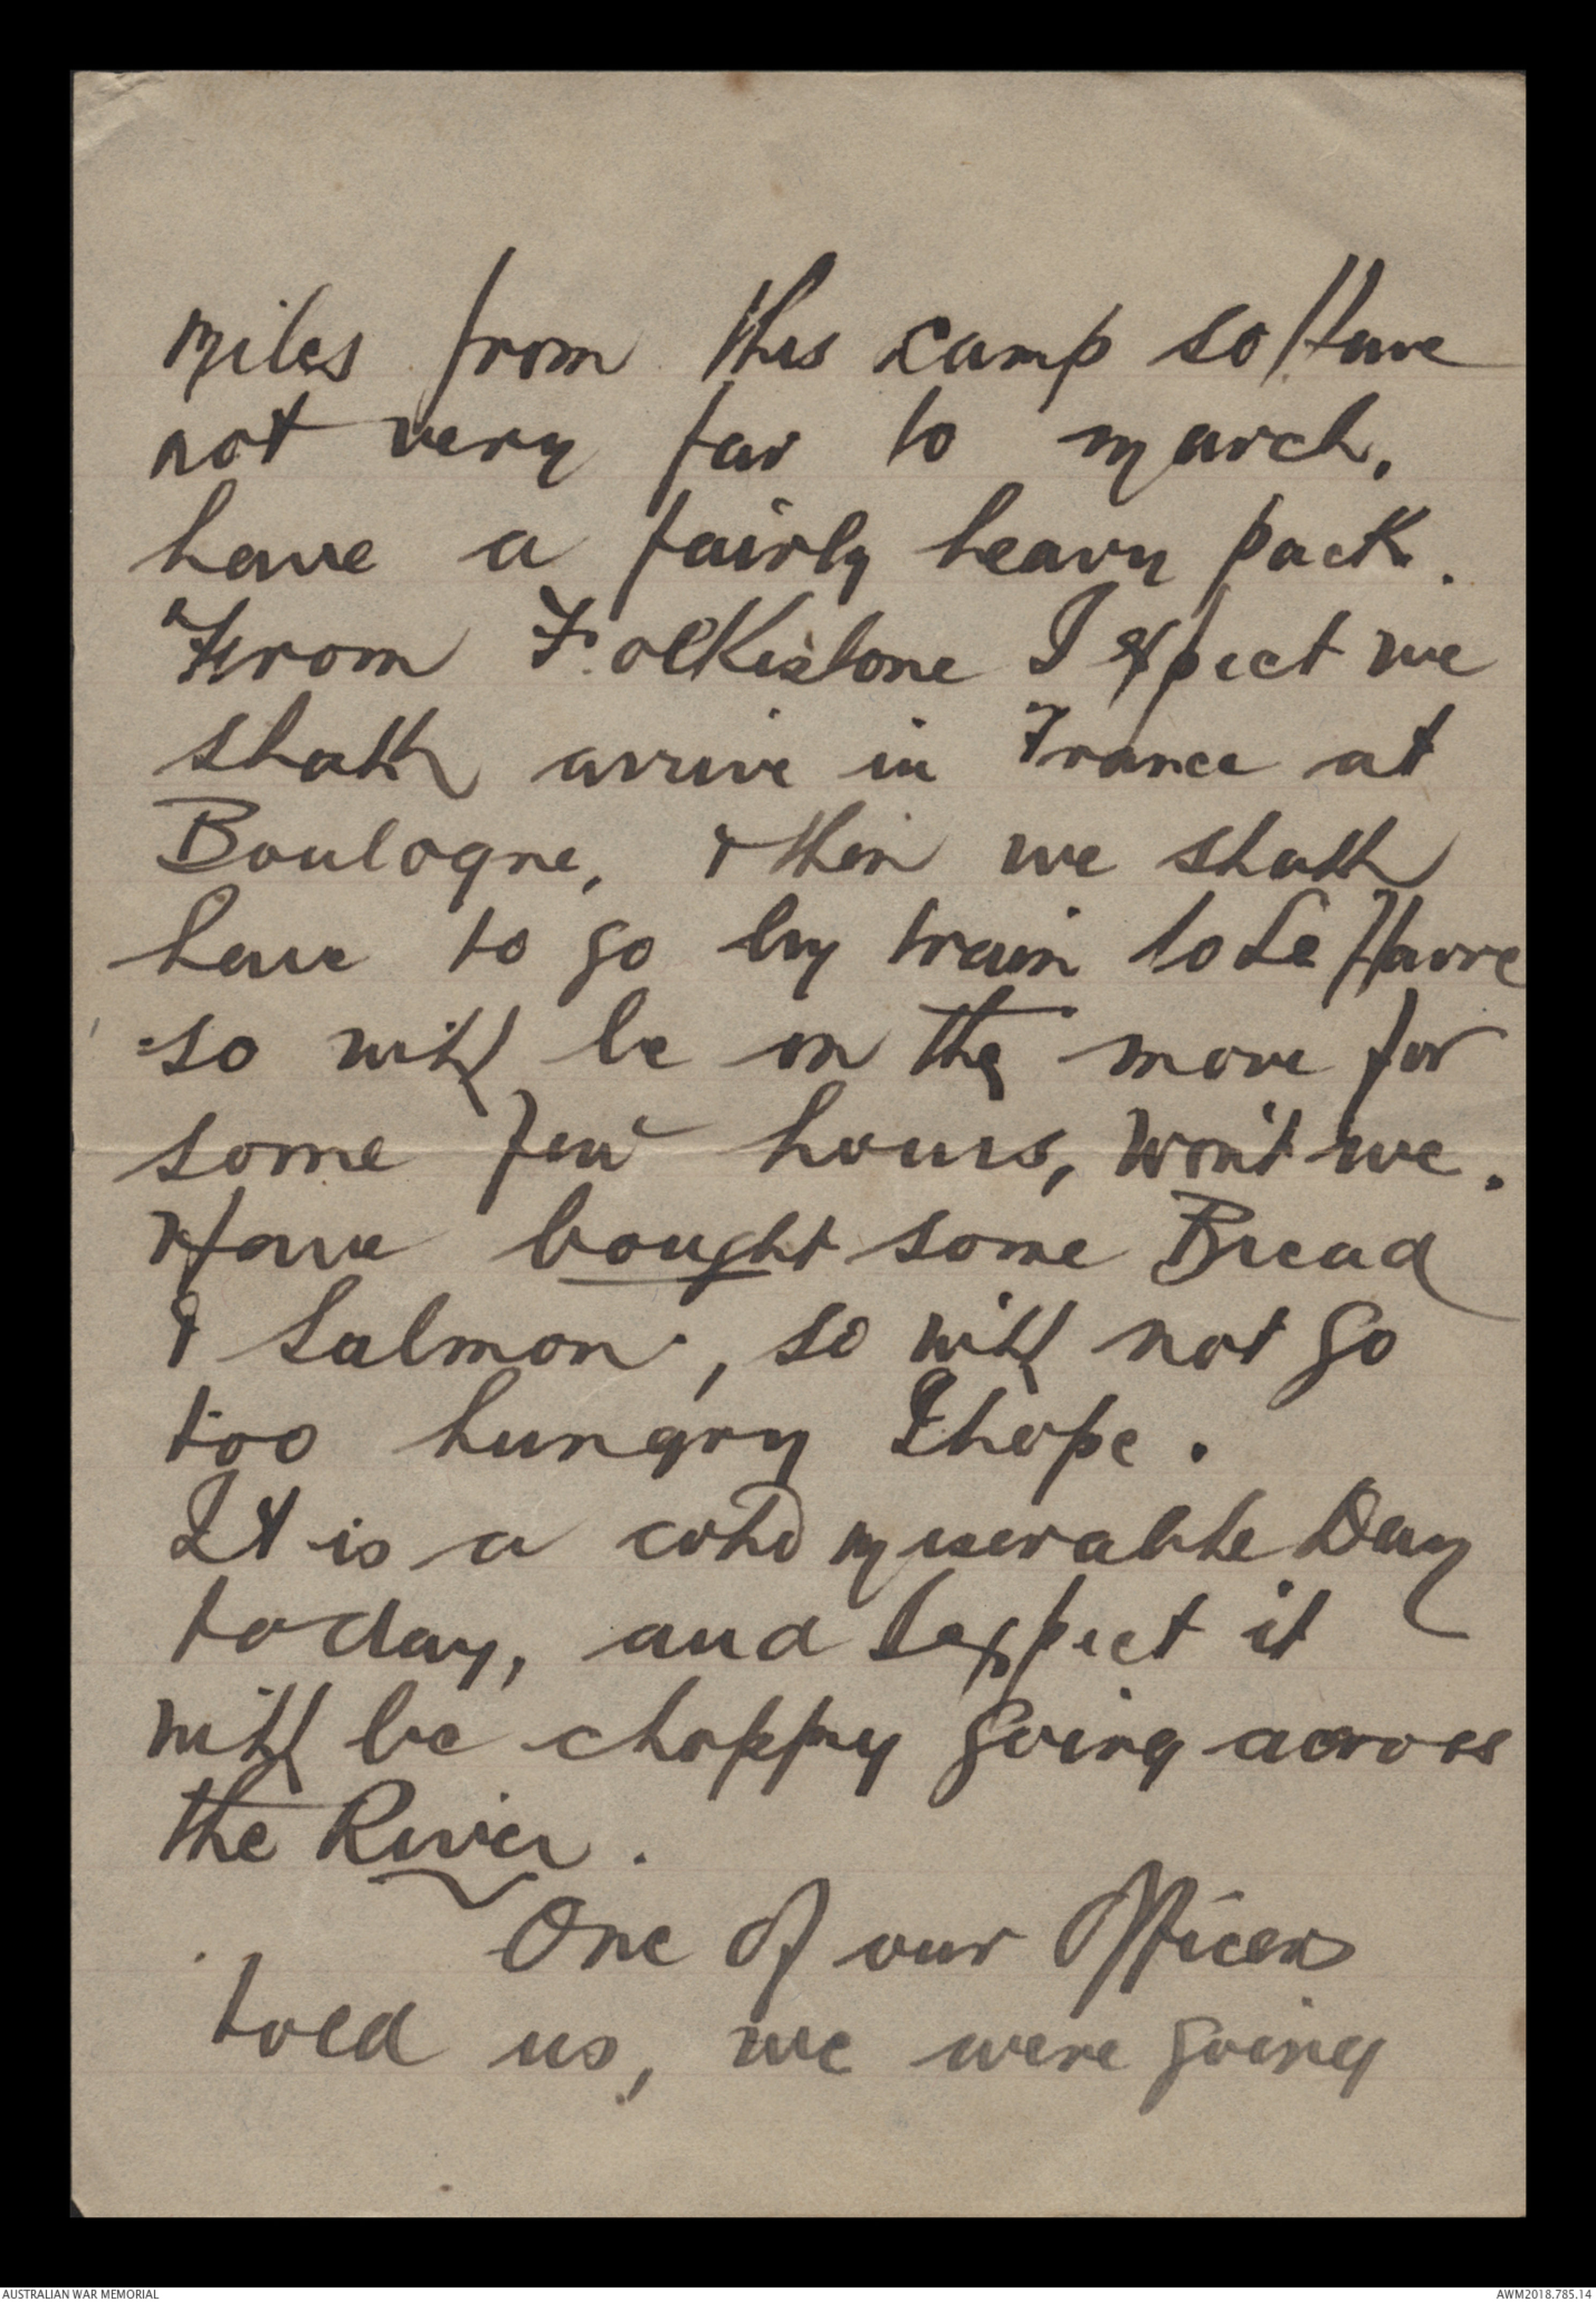 miles from this camp so Have
not very far to march.
have a fairly heavy pack.
From Folkistone I expect we
shall arrive in France at
Boulogne, & then we shall
have to go by train to Le Havre
so will be on the move for
some few hours, won't we.
Have bought some Bread
& Salmon, so will not go
too hungry I hope.
It is a cold miserable Day
today, and I expect it
will be choppy going across
the River.
One of our Officers
told us, we were going
AUSTRALIAN WAR MEMORIAL
AWM2018.785.14